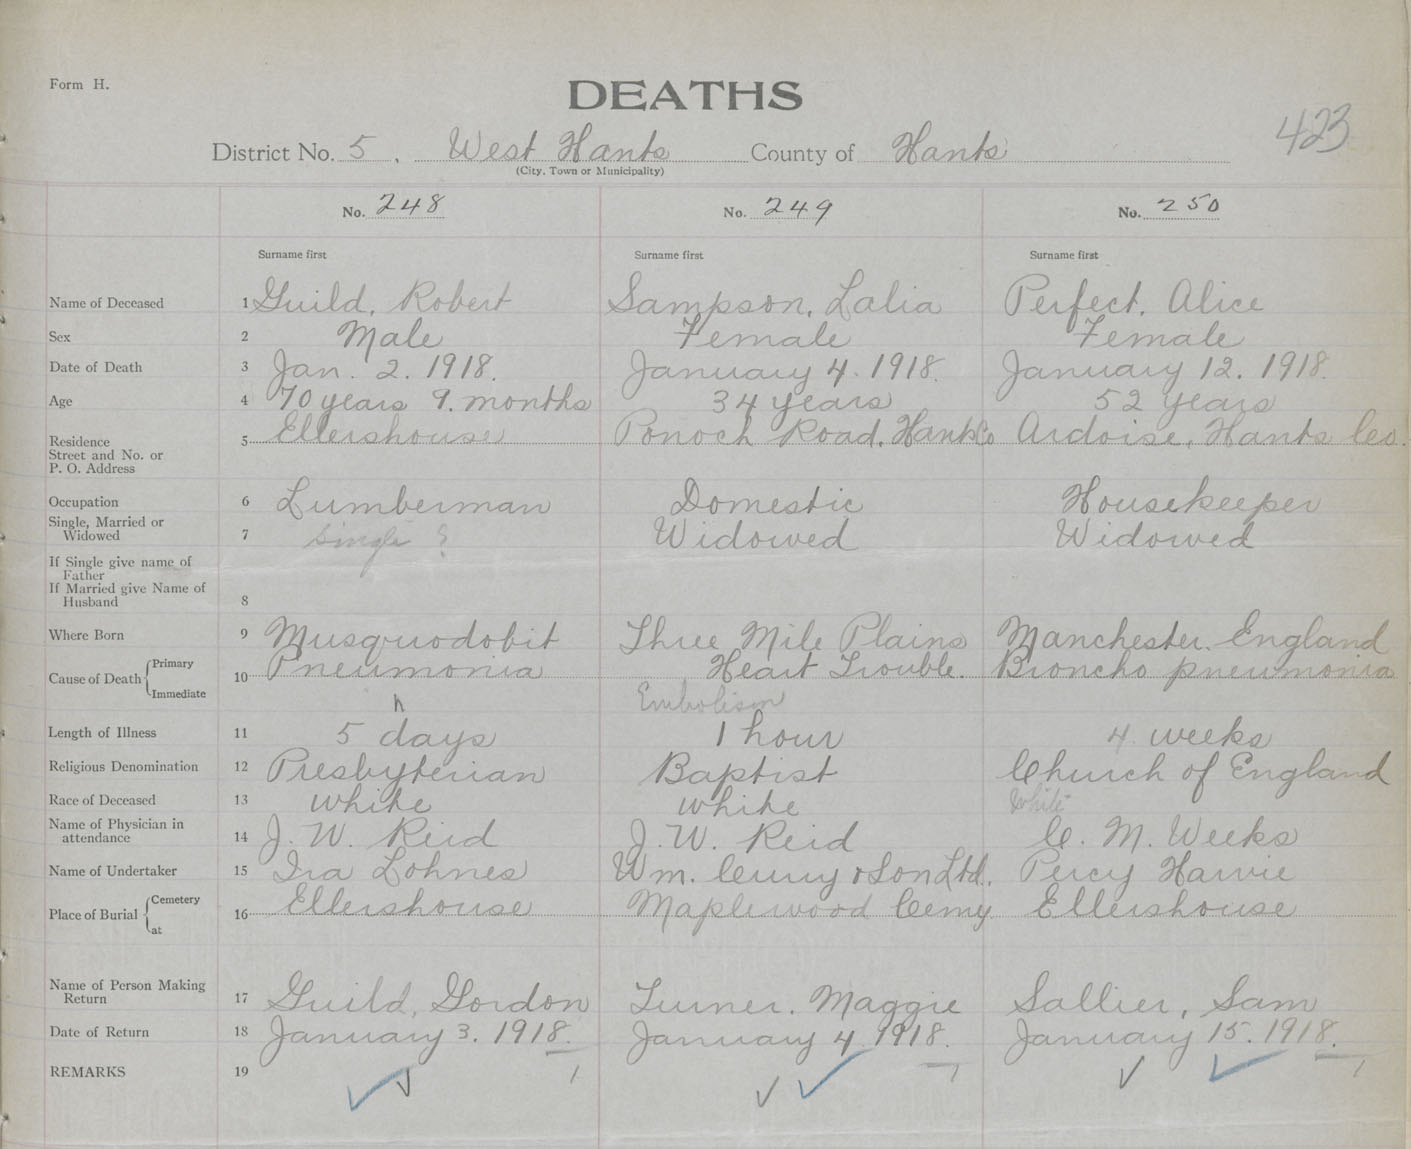 Form H.
DEATHS
423
District No. 5, West Hants County of Hants
(City, Town or Municipality)
No. 248 No. 249 No. 250
Surname first Surname first Surname first
Name of Deceased 1 Guild, Robert Sampson, Lalia Perfect, Alice
Sex 2 Male Female Female
Date of Death 3 Jan. 2. 1918. January 4. 1918. January 12. 1918.
Age 4 70 years 9. months 34 years 52 years
Residence 5 Ellershouse Ponoch Road, Hants Co Ardoise, Hants Co.
Street and No. or
P. O. Address
Occupation 6 Lumberman Domestic Housekeeper
Single, Married or
Widowed 7 Single ? Widowed Widowed
If Single give name of
Father
If Married give Name of
Husband 8
Where Born 9 Musquodobit Three Mile Plains Manchester. England
Cause of Death Primary 10 Pneumonia Heart Trouble. Broncho pneumonia
Immediate h Embolism
Length of Illness 11 5 days 1 hour 4 weeks
Religious Denomination 12 Presbyterian Baptist Church of England
Race of Deceased 13 white white white
Name of Physician in
attendance 14 J. W. Reid J. W. Reid C. M. Weeks
Name of Undertaker 15 Ira Lohnes Wm. Curry & Son Ltd. Percy Harvie
Place of Burial Cemetery 16 Ellershouse Maplewood Cemy. Ellershouse
at
Name of Person Making
Return 17 Guild, Gordon Turner. Maggie Sallier, Sam
Date of Return 18 January 3. 1918. January 4. 1918. January 15. 1918.
REMARKS 19